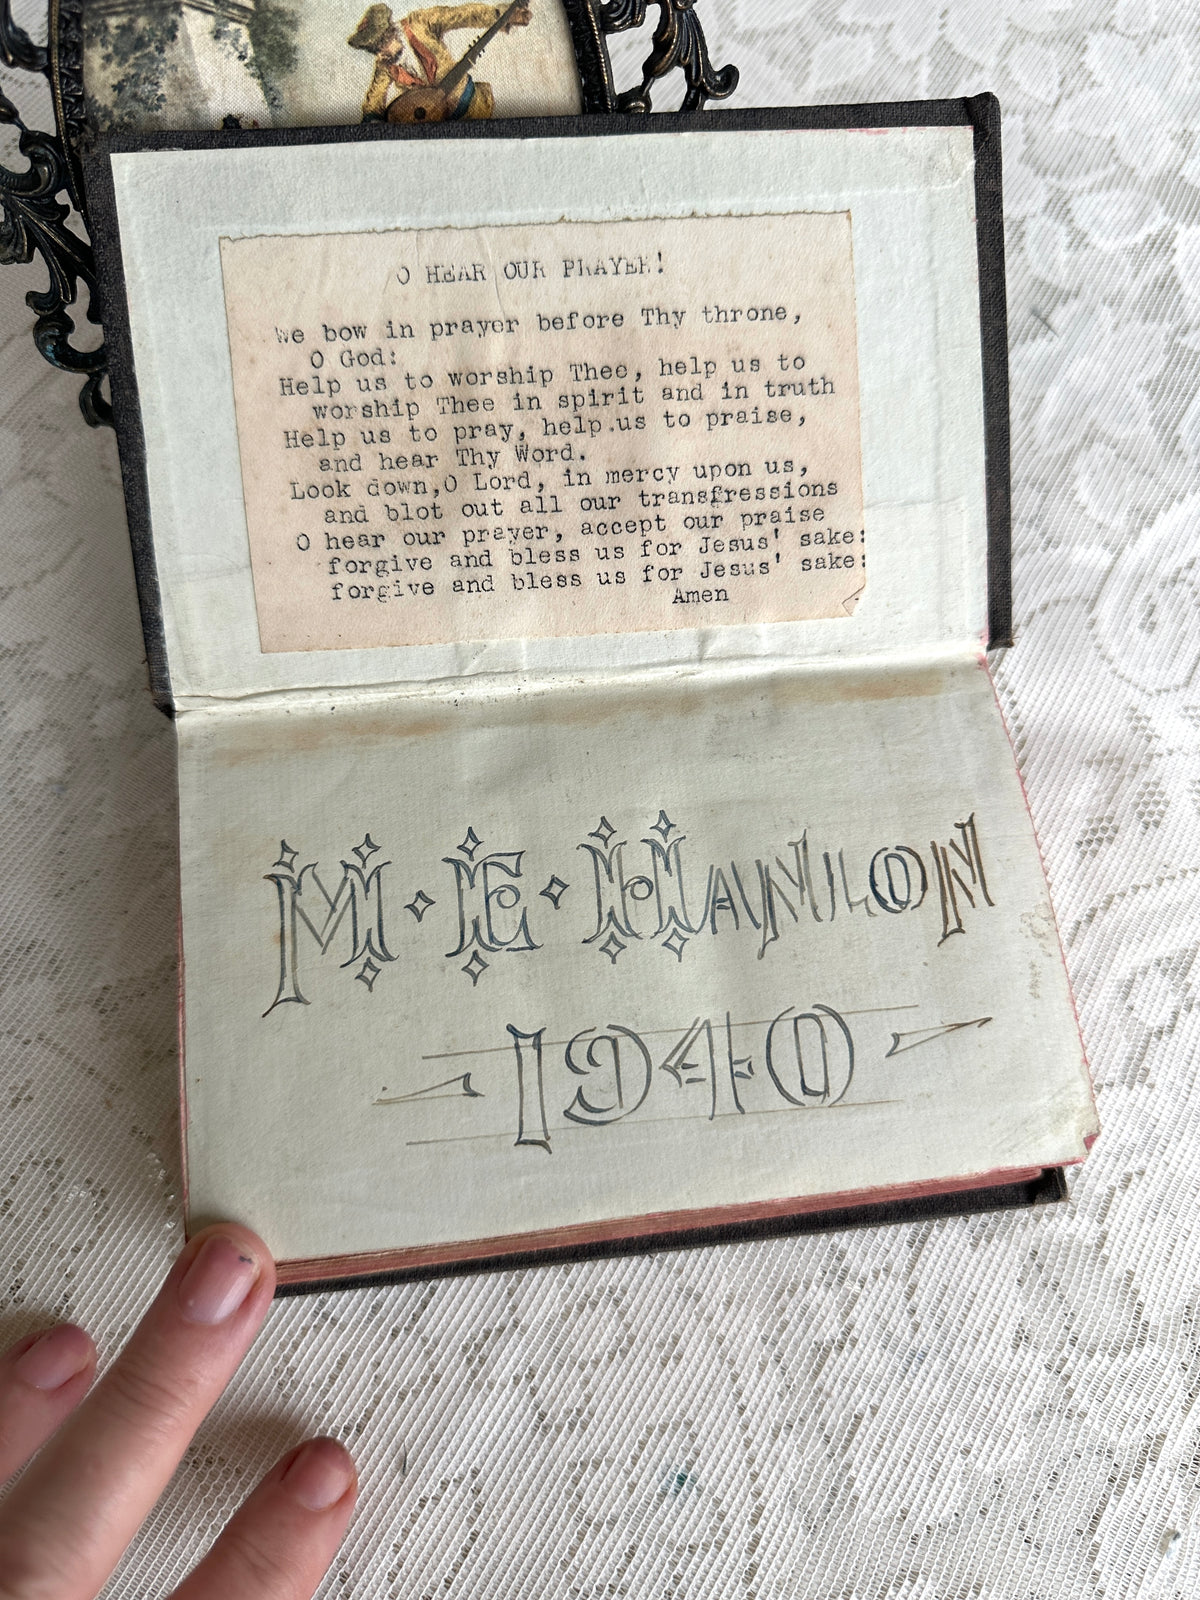 O HEAR OUR PRAYER!
We bow in prayer before Thy throne,
O God:
Help us to worship Thee, help us to
worship Thee in spirit and in truth
Help us to pray, help.us to praise,
and hear Thy Word.
Look down,O Lord, in mercy upon us,
and blot out all our transgressions
O hear our prayer, accept our praise
forgive and bless us for Jesus' sake:
forgive and bless us for Jesus' sake:
Amen
M·E·HANLON
-1940-